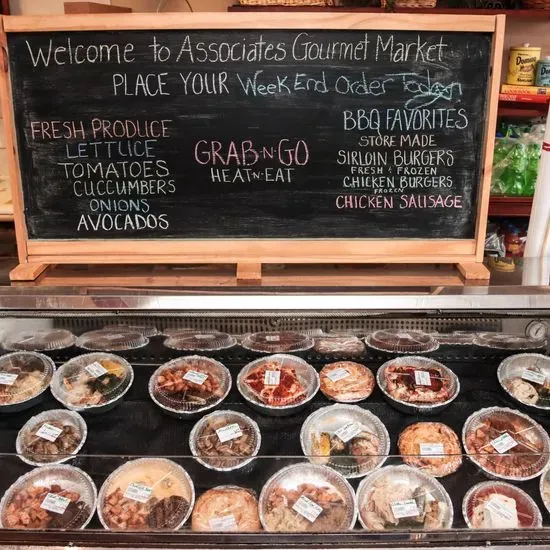 Welcome to Associates Gourmet Market
PLACE YOUR Week End Order Today
FRESH PRODUCE
LETTUCE
TOMATOES
CUCCUMBERS
ONIONS
AVOCADOS
GRAB-N-GO
HEAT-N-EAT
BBQ FAVORITES
STORE MADE
SIRLOIN BURGERS
FRESH & FROZEN
CHICKEN BURGERS
FROZEN
CHICKEN SAUSAGE